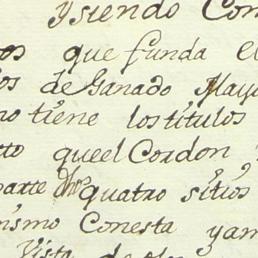 ysiendo Con
os que funda el
os de Ganado Mayo
no tiene los titulos
to queel Cordon
parte quatro sitios
mismo Conesta yam
Vista de